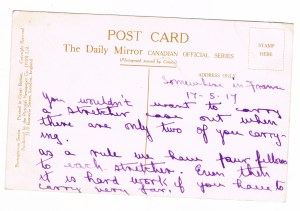 POST CARD
The Daily Mirror CANADIAN OFFICIAL SERIES
(Photograph passed by Censor)
STAMP
HERE
ADDRESS ONLY
Somewhere in France
17-5-17
You wouldn't want to carry
a stretcher case out when
there are only two of you carry-
ing.
as a rule we have four fellows
to each stretcher. Even then
it is hard work if you have to
carry very far.